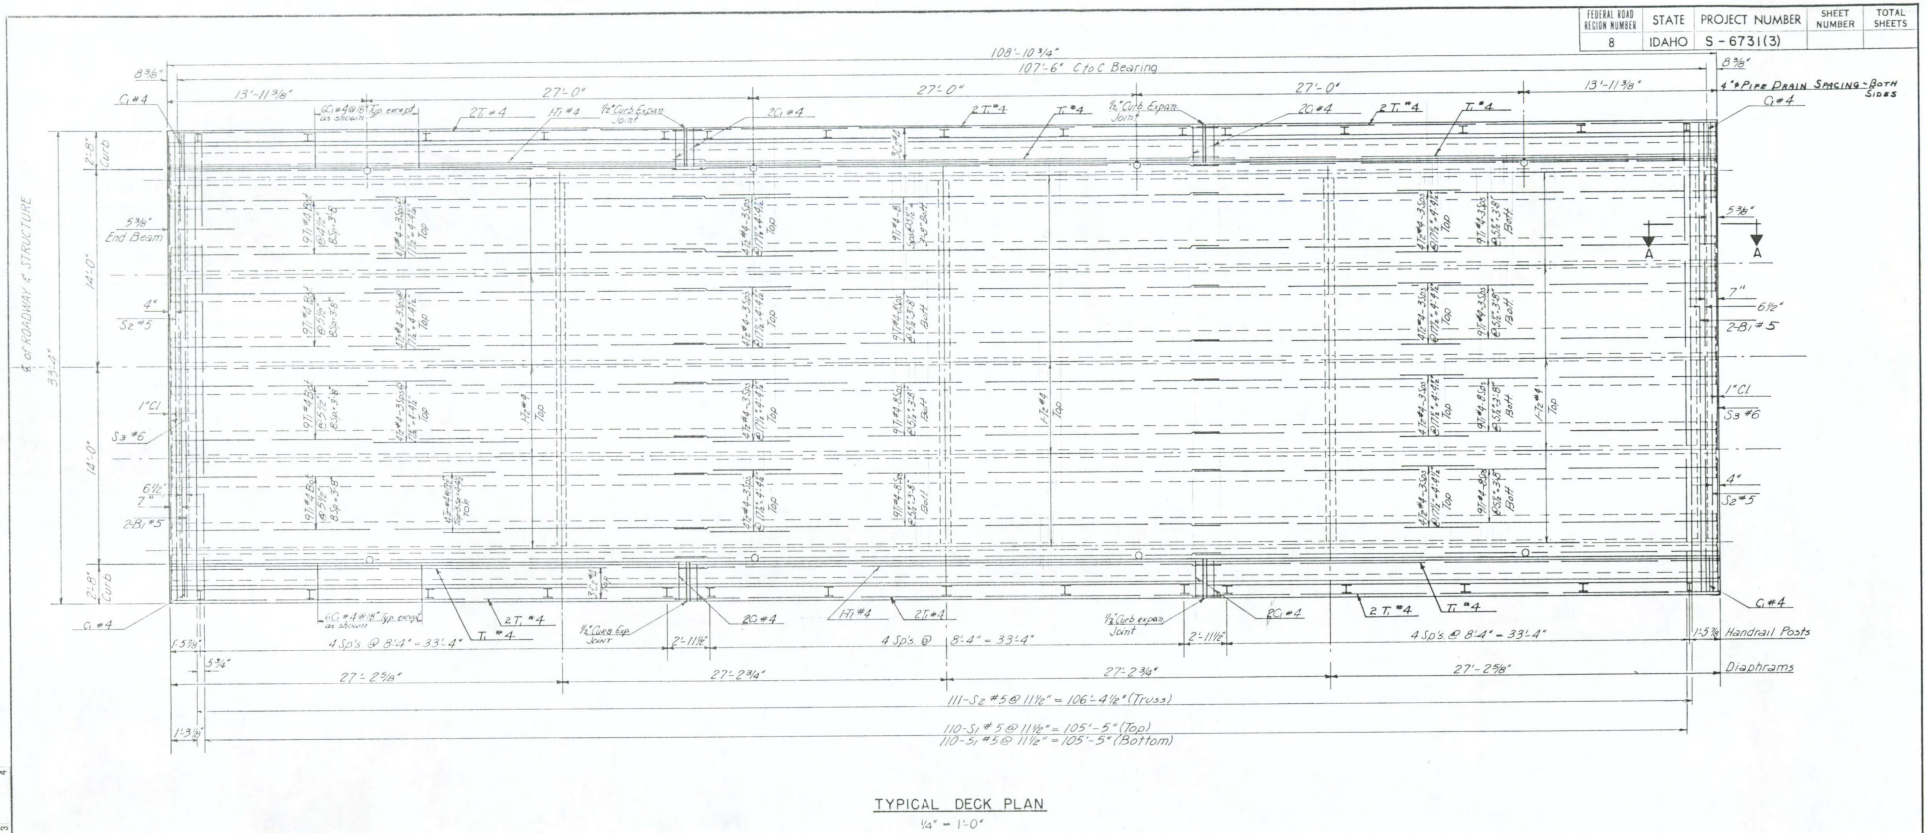 FEDERAL ROAD REGION NUMBER
STATE
PROJECT NUMBER
SHEET NUMBER
TOTAL SHEETS
8
IDAHO
S - 6731(3)
108'-10 3/4"
107'-6" C to C Bearing
8 3/8"
8 3/8"
13'-11 3/8"
27'-0"
27'-0"
27'-0"
13'-11 3/8"
4"φ PIPE DRAIN SPACING - BOTH SIDES
C1 #4
6C1 #4@18" Typ. except as shown
2T1 #4
1-T1 #4
1/2" Curb Expan Joint
2C1 #4
2 T1 #4
T1 #4
1/2" Curb Expan Joint
2C1 #4
2 T1 #4
T1 #4
C1 #4
2'-8" Curb
3C2 #4
℄ OF ROADWAY & STRUCTURE
33'-4"
14'-0"
14'-0"
2'-8" Curb
5 3/8"
End Beam
4"
S2 #5
1" Cl.
S3 #6
6 1/2"
7"
2-B1 #5
C1 #4
9T1 #4 Bot
8 Sp= 3'-8"
4T2 #4-3 Sps
@17 1/2"= 4'-4 1/2"
Top
9T1 #4-8 Sps
@5 1/2"= 3'-8"
Bott
1-T2 #4
Top
1-T2 #4
Top
1-T2 #4
Top
5 3/8"
A
A
7"
6 1/2"
2-B1 #5
1" Cl.
S3 #6
4"
S2 #5
C1 #4
6C1 #4@18" Typ. except as shown
2 T1 #4
T1 #4
1/2" Curb Exp. Joint
3C2 #4 Top
2C1 #4
1-T1 #4
2T1 #4
1/2" Curb expan Joint
2C1 #4
2 T1 #4
T1 #4
1'-5 7/8"
4 Sp's. @ 8'-4" = 33'-4"
2'-11 1/2"
4 Sp's. @ 8'-4" = 33'-4"
2'-11 1/2"
4 Sp's. @ 8'-4" = 33'-4"
1'-5 7/8"
Handrail Posts
5 3/4"
27'-2 5/8"
27'-2 3/4"
27'-2 3/4"
27'-2 5/8"
Diaphrams
111-S2 #5 @ 11 1/2" = 106'-4 1/2" (Truss)
1'-3 1/8"
110-S1 #5 @ 11 1/2" = 105'-5" (Top)
110-S1 #5 @ 11 1/2" = 105'-5" (Bottom)
TYPICAL DECK PLAN
1/4" = 1'-0"
4
3